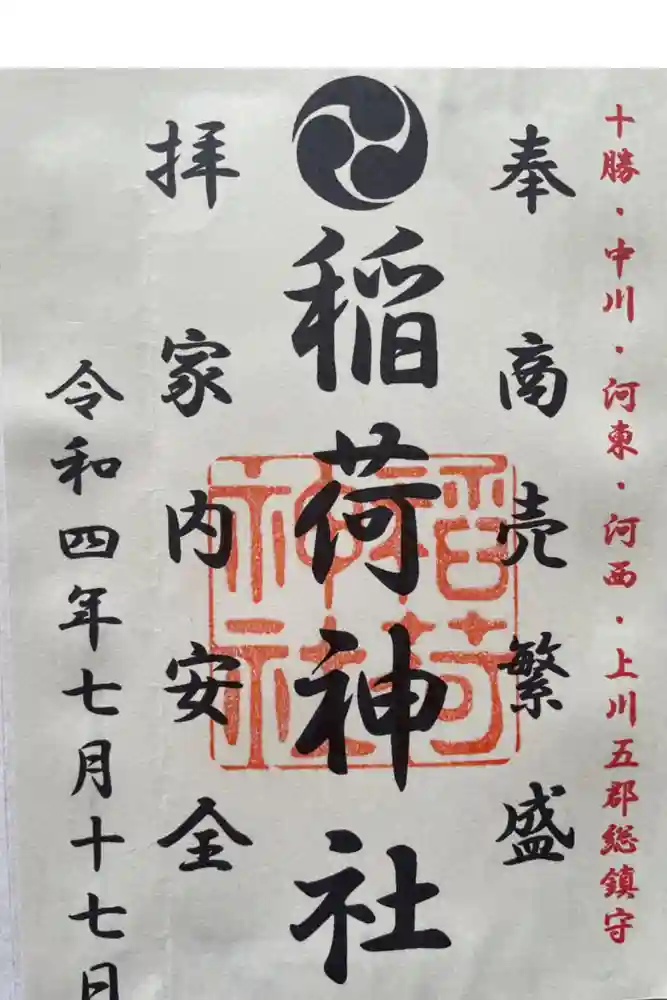 十勝・中川・河東・河西・上川五郡総鎮守
奉 商売繁盛
稲荷神社
拝 家内安全
令和四年七月十七日
稲荷
神社